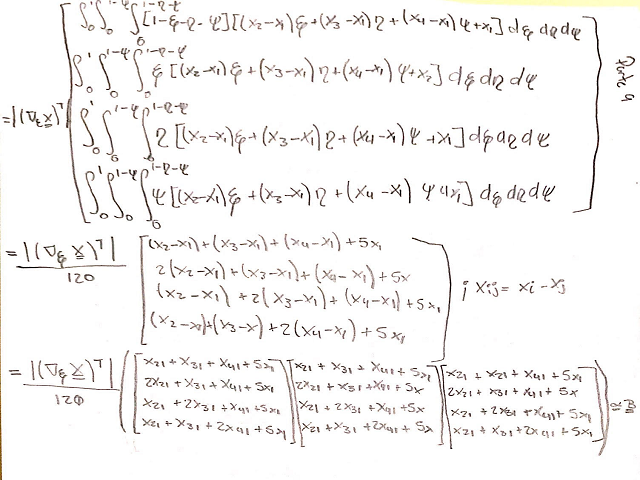 ∫₀¹∫₀^{1-ψ}∫₀^{1-η-ψ} [1-ξ-η-ψ][(x₂-x₁)ξ+(x₃-x₁)η+(x₄-x₁)ψ+x₁] dξ dη dψ
∫₀¹∫₀^{1-ψ}∫₀^{1-η-ψ} ξ [(x₂-x₁)ξ+(x₃-x₁)η+(x₄-x₁)ψ+x₂] dξ dη dψ
=|(∇ξ x)ᵀ|
∫₀¹∫₀^{1-ψ}∫₀^{1-η-ψ} η [(x₂-x₁)ξ+(x₃-x₁)η+(x₄-x₁)ψ+x₁] dξ dη dψ
∫₀¹∫₀^{1-ψ}∫₀^{1-η-ψ} ψ [(x₂-x₁)ξ+(x₃-x₁)η+(x₄-x₁)ψ+x₁] dξ dη dψ
= |(∇ξ x)ᵀ| / 120
(x₂-x₁)+(x₃-x₁)+(x₄-x₁)+5x₁
2(x₂-x₁)+(x₃-x₁)+(x₄-x₁)+5x
(x₂-x₁)+2(x₃-x₁)+(x₄-x₁)+5x₁
(x₂-x₁)+(x₃-x)+2(x₄-x₁)+5x₁
; xij = xi - xj
= |(∇ξ x)ᵀ| / 120
x₂₁+x₃₁+x₄₁+5x₁ x₂₁+x₃₁+x₄₁+5x₁ x₂₁+x₂₁+x₄₁+5x₁
2x₂₁+x₃₁+x₄₁+5x₁ 2x₂₁+x₃₁+x₄₁+5x 2x₂₁+x₃₁+x₄₁+5x
x₂₁+2x₃₁+x₄₁+5x₁ x₂₁+2x₃₁+x₄₁+5x x₂₁+2x₃₁+x₄₁+5x₁
x₂₁+x₃₁+2x₄₁+5x₁ x₂₁+x₃₁+2x₄₁+5x x₂₁+x₃₁+2x₄₁+5x₁
≅ B